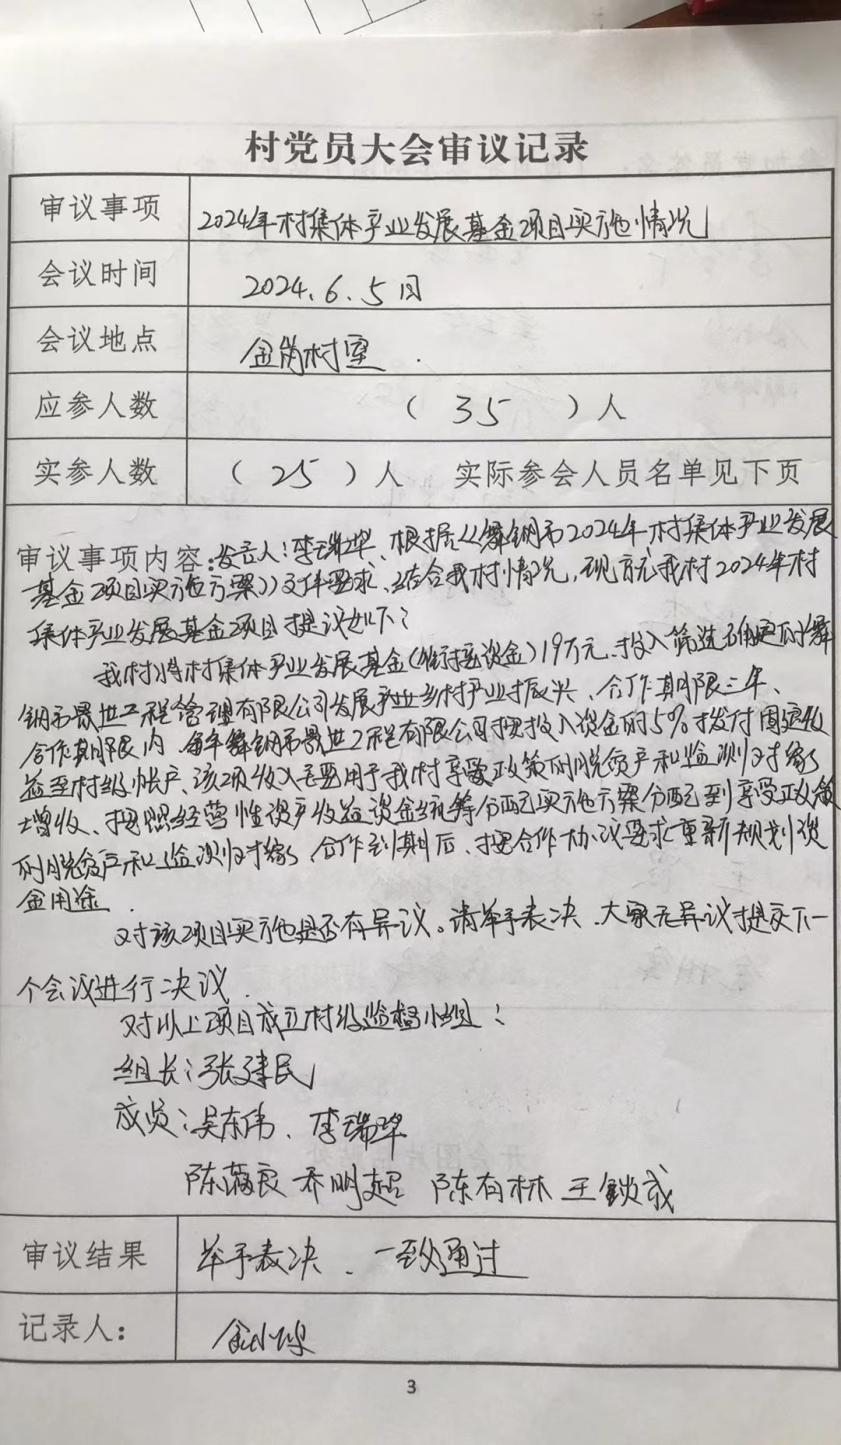 村党员大会审议记录
审议事项 2024年村集体产业发展基金项目实施情况
会议时间 2024.6.5日
会议地点 金岗村室.
应参人数 （ 35 ）人
实参人数 （ 25 ）人 实际参会人员名单见下页
审议事项内容:发言人:李瑞华、根据《舞钢市2024年村集体产业发展
基金项目实施方案》文件要求、结合我村情况,现就我村2024年村
集体产业发展基金项目提议如下:
我村将村集体产业发展基金(衔接资金)19万元、投入筛选 舞
钢市 工程管理有限公司发展产业乡村产业振兴、合作期限三年、
合作期限内、每年舞钢市 工程有限公司按投入资金的5%拨付固定收
益至村级帐户、该项收入主要用于我村享受政策的脱贫户和监测对象
增收、按照经营性资产收益资金统筹分配实施方案分配到享受政策
的脱贫户和监测对象、合作到期后、按合作协议要求重新规划资
金用途.
对该项目实施是否有异议。请举手表决、大家无异议提交下一
个会议进行决议.
对以上项目成立村级监督小组:
组长:张建民
成员:吴东伟、李瑞华
陈 良 乔明超 陈有林 王锁成
审议结果 举手表决、一致通过
记录人:
3